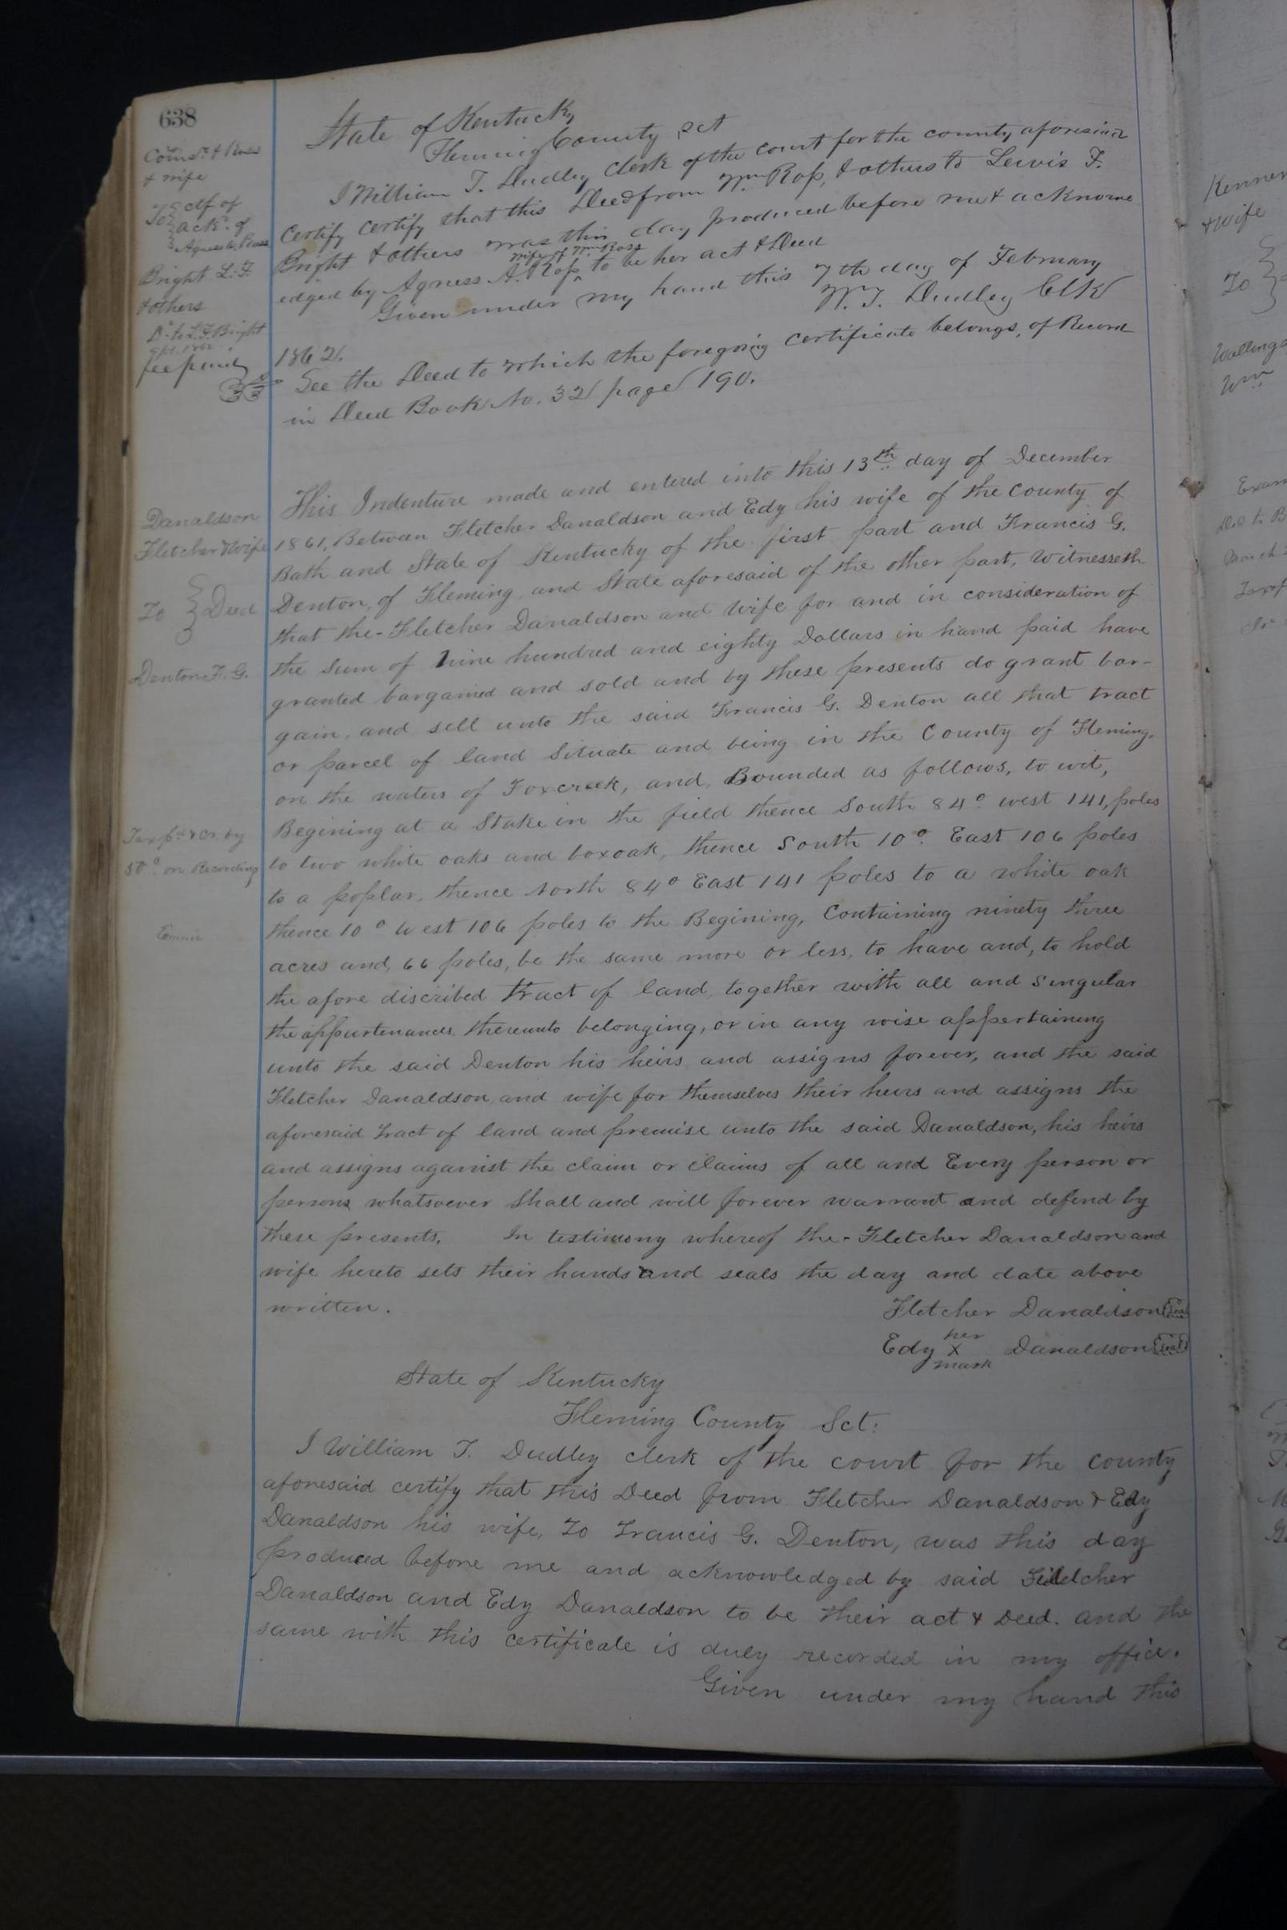 638
State of Kentucky
Fleming County Sct
I William T. Dudley clerk of the court for the county aforesaid
certify certify that this Deed from Wm Ross, & others to Lewis F.
Bright & others was this day produced before me & acknowl
edged by Agness A. Ross wife of Wm Ross to be her act & Deed
Given under my hand this 7th day of February
1862. W. T. Dudley Clk
See the Deed to which the foregoing certificate belongs, of Record
in Deed Book No. 32 page 190.
& Ross
& wife
To
ack. of
Agness Ross
Bright L. F.
& others
D. to L. F. Bright
fee paid
Danaldson
Fletcher & wife
To } Deed
Denton F. G.
This Indenture made and entered into this 13th day of December
1861, Betwen Fletcher Danaldson and Edy his wife of the County of
Bath and State of Kentucky of the first part and Francis G.
Denton, of Fleming, and State aforesaid of the other part, Witnesseth
that the - Fletcher Danaldson and wife for and in consideration of
the sum of nine hundred and eighty Dollars in hand paid have
granted bargained and sold and by these presents do grant bar-
gain, and sell unto the said Francis G. Denton all that tract
or parcel of land Situate and being in the County of Fleming,
on the waters of Foxcreek, and, Bounded as follows, to wit,
Begining at a Stake in the field thence South 84° west 141, poles
to two white oaks and boxoak, thence South 10°. East 106 poles
to a poplar, thence North 84° East 141 poles to a white oak
thence 10° West 106 poles to the Begining, Containing ninety three
acres and, 66 poles, be the same more or less, to have and, to hold
the afore discribed tract of land, together with all and Singular
the appurtenances thereunto belonging, or in any wise appertaining
unto the said Denton his heirs, and assigns forever, and the said
Fletcher Danaldson, and wife for themselves their heirs and assigns the
aforesaid tract of land and premise unto the said Danaldson, his heirs
and assigns against the claim or claims of all and Every person or
persons whatsoever Shall and will forever warrant and defend by
these presents. In testimony whereof the - Fletcher Danaldson and
wife hereto sets their hands and seals the day and date above
written.
Tax pd & Cr. by
50°. on Recording
Fletcher Danaldson Seal
Edy her X mark Danaldson Seal
State of Kentucky
Fleming County Sct:
I William T. Dudley clerk of the court for the county
aforesaid certify that this Deed from Fletcher Danaldson & Edy
Danaldson his wife, To Francis G. Denton, was this day
produced before me and acknowledged by said
Danaldson and Edy Danaldson to be their act & Deed. and the
same with this certificate is duly recorded in my office.
Given under my hand this
Kenner
& wife
To
Wm
Exam